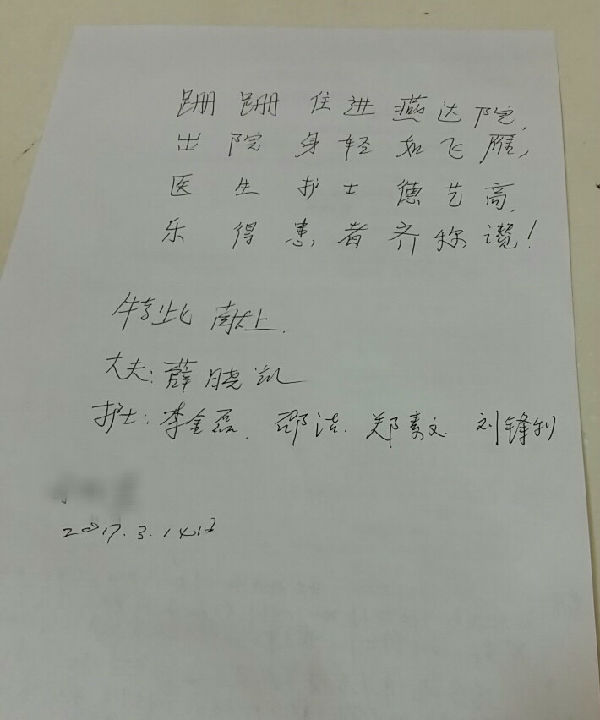 跚跚住进燕达院,
出院身轻如飞雁,
医生护士德艺高,
乐得患者齐称讚!
特此献上.
大夫:薛晓凯
护士:李金磊、邵洁、郑素文 刘锋利
2017.3.14日